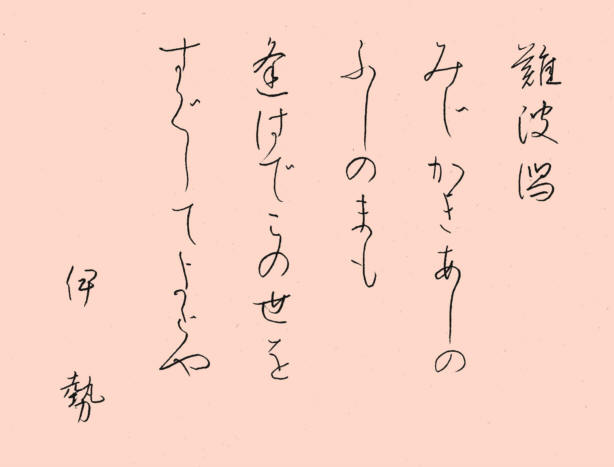 難波潟
みじかきあしの
ふしのまも
逢はでこの世を
すぐしてよとや
伊勢